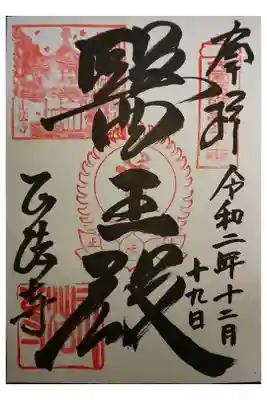 奉拝
令和二年十二月
十九日
醫王殿
正法寺